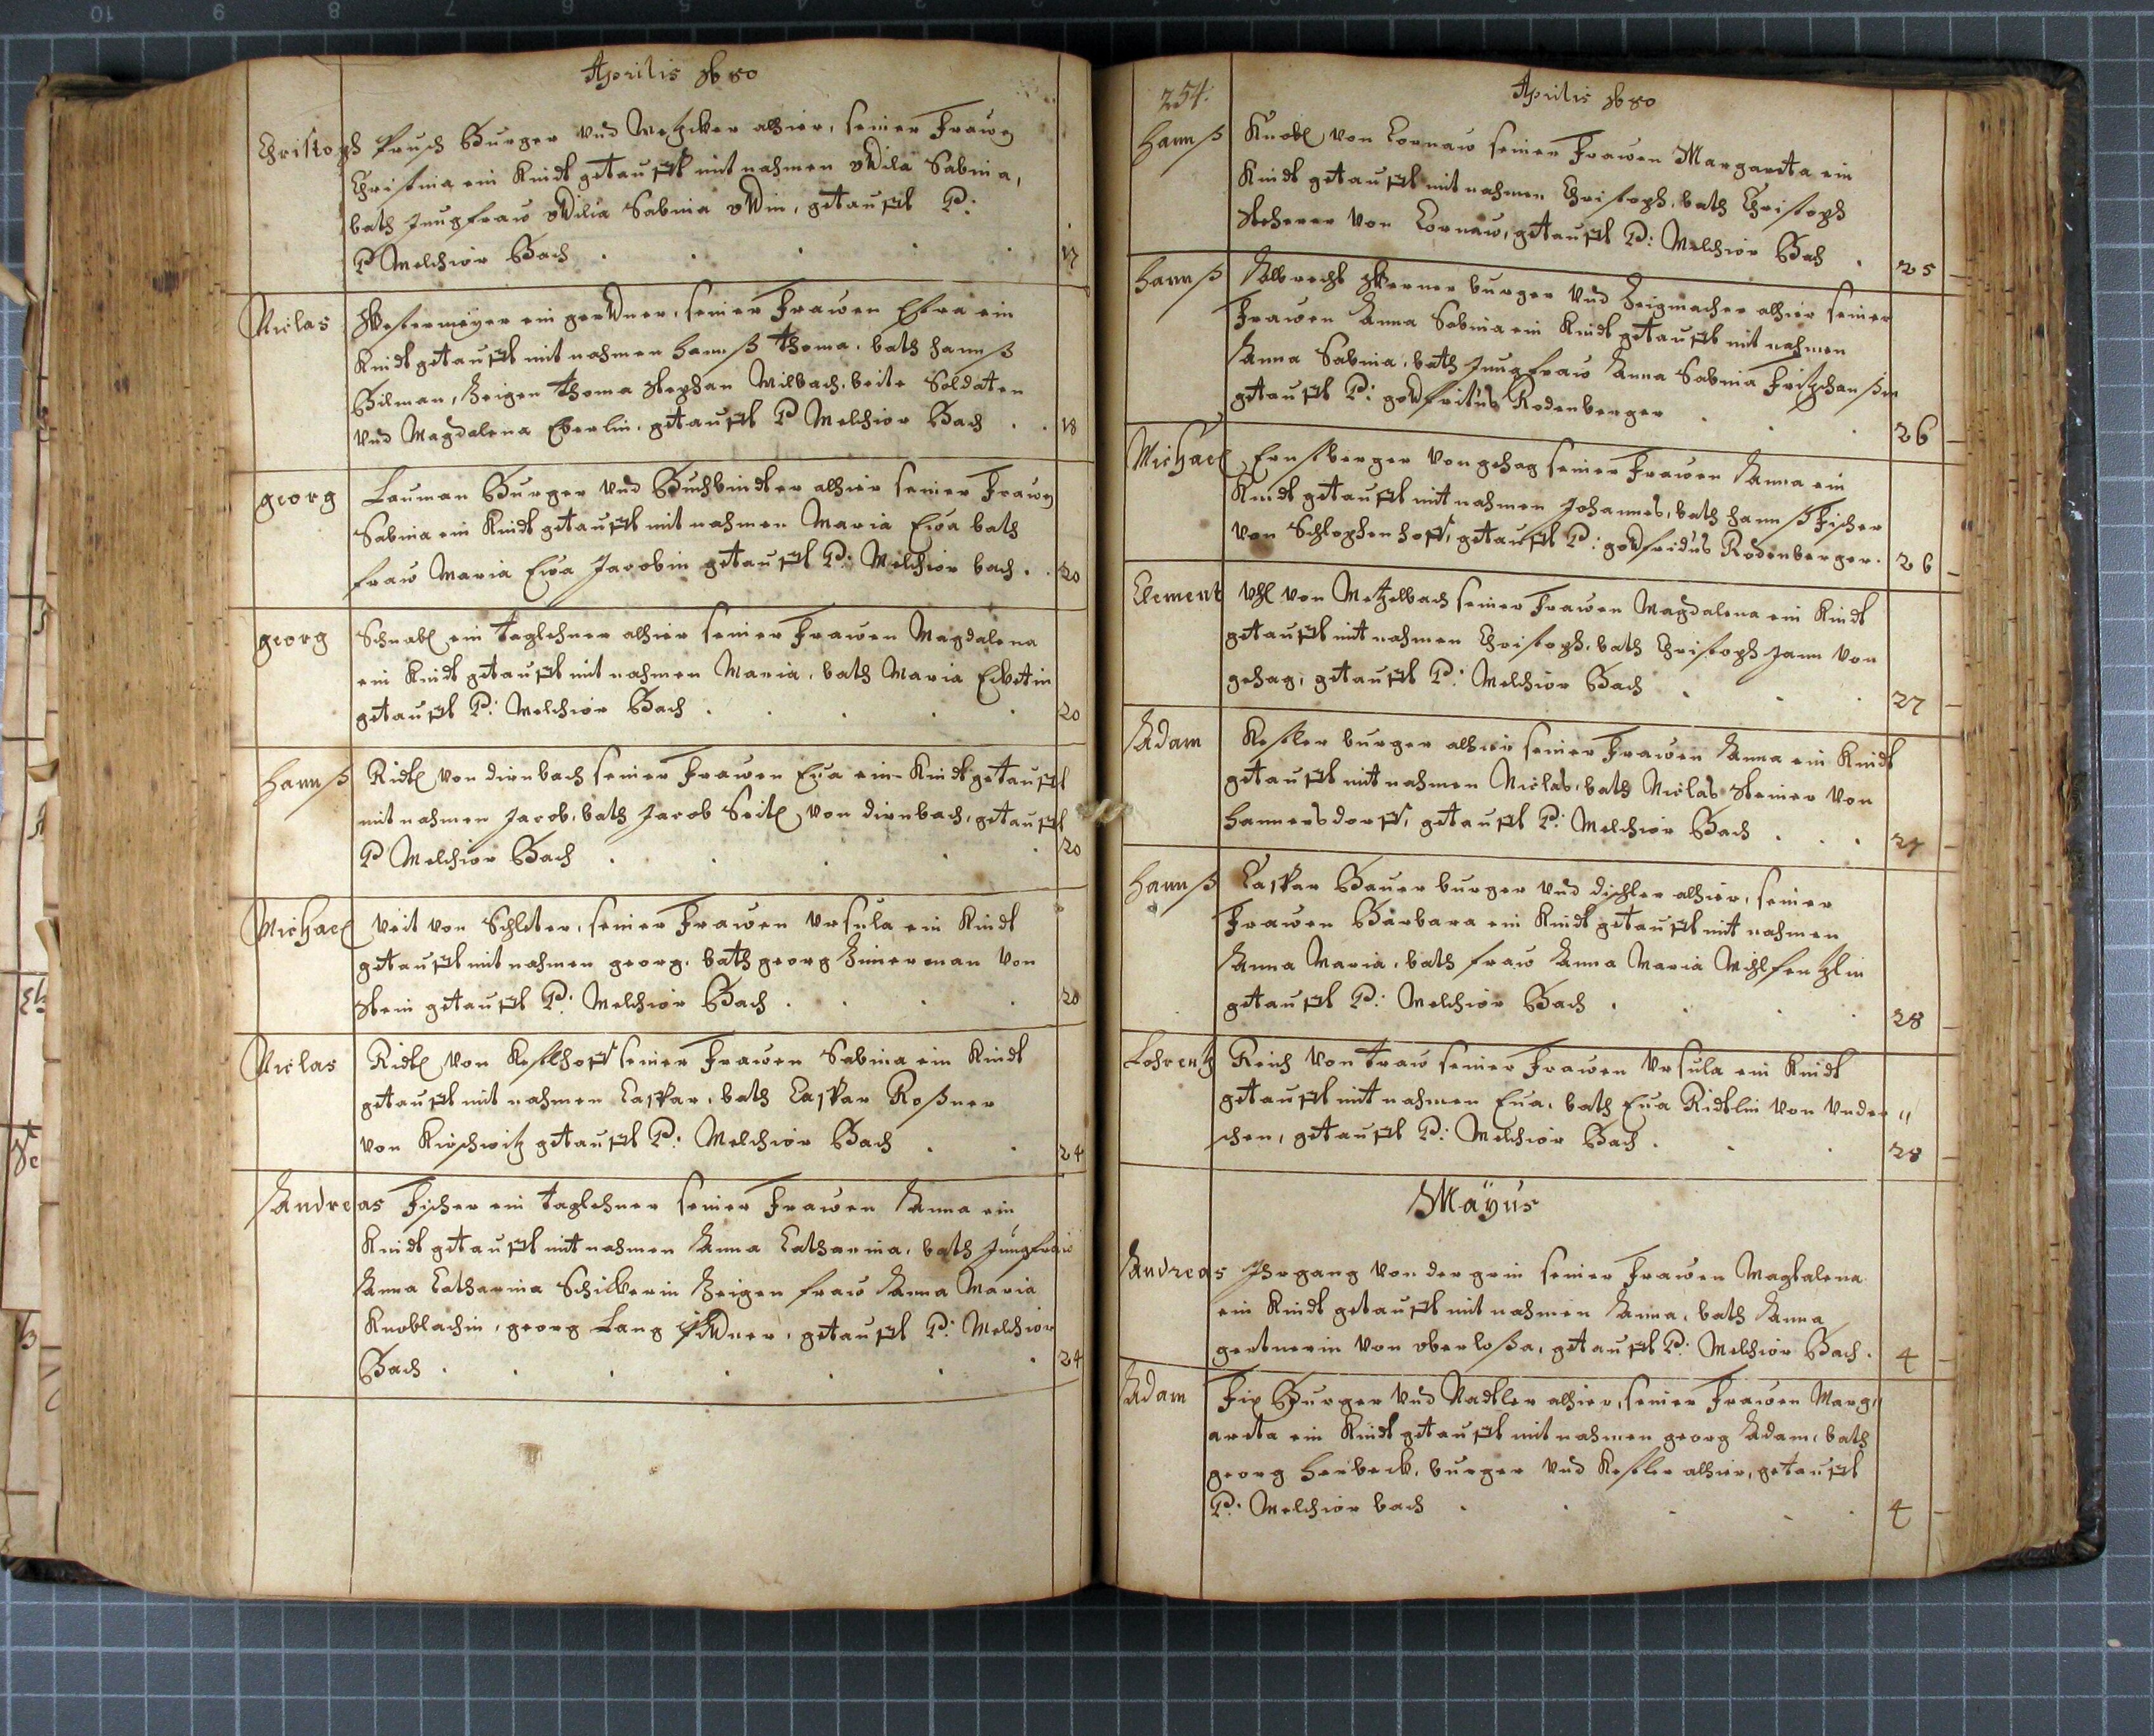 Aprilis 1680
Christoph Prusch Burger und Metzker alhier, seiner Frawen
Christina ein Kindt getaufft mit nahmen Ottila Sabina,
bath Jungfraw Ottilia Sabina Ottin, getaufft P:
P Melchior Bach . . . . 17
Niclas Westermeyer ein gerttner, seiner Frawen Efra ein
Kindt getaufft mit nahmen Hannß Thoma, bath Hannß
Bilman, Zeigen Thoma Stephan Milbach, beite Soldaten
und Magdalena Eberlin, getaufft P Melchior Bach . . 18
georg Lauman Burger und Buchbindter alhier seiner Frawen
Sabina ein Kindt getaufft mit nahmen Maria Eva bath
fraw Maria Eva Jacobin getaufft P: Melchior bach . . 20
georg Schnabl ein taglehner alhier seiner Frawen Magdalena
ein Kindt getaufft mit nahmen Maria, bath Maria Ecketin
getaufft P: Melchior Bach . . . . 20
Hannß Ridtl von dirnbach seiner Frawen Eva ein Kindt getaufft
mit nahmen Jacob, bath Jacob Seitl von dirnbach, getaufft
P Melchior Bach . . . . . 20
Michael Veit von Schleter, seiner Frawen Ursula ein Kindt
getaufft mit nahmen georg, bath georg Zimerman von
Stein getaufft P: Melchior Bach . . . . 20
Niclas Ridtl von Kestlhoff seiner Frawen Sabina ein Kindt
getaufft mit nahmen Caspar, bath Caspar Roßner
von Kirschwitz getaufft P: Melchior Bach . . 24
Andreas Fischer ein taglehner seiner Frawen Anna ein
Kindt getaufft mit nahmen Anna Catharina, bath Jungfraw
Anna Catharina Schickerin Zeigen fraw Anna Maria
Knoblachin, georg Lang getaufft P: Melchior
Bach . . . . . . 24
254.
Aprilis 1680
Hannß Knobl von Cornaw seiner Frawen Margareta ein
Kindt getaufft mit nahmen Christoph, bath Christoph
Steherer von Cornaw, getaufft P: Melchior Bach . 25
Hannß Albrecht Werner burger und Zeigmacher alhier seiner
Frawen Anna Sabina ein Kindt getaufft mit nahmen
Anna Sabina, bath Jungfraw Anna Sabina Fritzhanßin
getaufft P: gottfritus Rodenberger . . . 26
Michael Ernstberger von gehag seiner Frawen Anna ein
Kindt getaufft mit nahmen Johannes, bath Hannß Fischer
von Schlophenhoff, getaufft P: gottfridus Rodenberger. 26
Clement Uhl von Metzelbach seiner Frawen Magdalena ein Kindt
getaufft mit nahmen Christoph, bath Christoph Jann von
gehag, getaufft P: Melchior Bach . . . 27
Adam Kestler burger alhier seiner Frawen Anna ein Kindt
getaufft mit nahmen Niclas, bath Niclas Steiner von
Hannersdorff, getaufft P: Melchior Bach . . . 27
Hannß Caspar Bauer burger und dischler alhier, seiner
Frawen Barbara ein Kindt getaufft mit nahmen
Anna Maria, bath fraw Anna Maria Mihlfentzlin
getaufft P: Melchior Bach . . . . 28
Lohrentz Reich von traw seiner Frawen Ursula ein Kindt
getaufft mit nahmen Eva, bath Eva Ridtlin von Under"
schen, getaufft P: Melchior Bach . . . 28
Mäyus
Andreas Irgang von der grin seiner Frawen Magtalena
ein Kindt getaufft mit nahmen Anna, bath Anna
gertnerin von oberloßa, getaufft P: Melchior Bach . 4
Adam Fix Burger und Nadtler alhier, seiner Frawen Marg"
areta ein Kindt getaufft mit nahmen georg Adam, bath
georg Herbeck, burger und Kestler alhier, getaufft
P: Melchior bach . . . . . 4